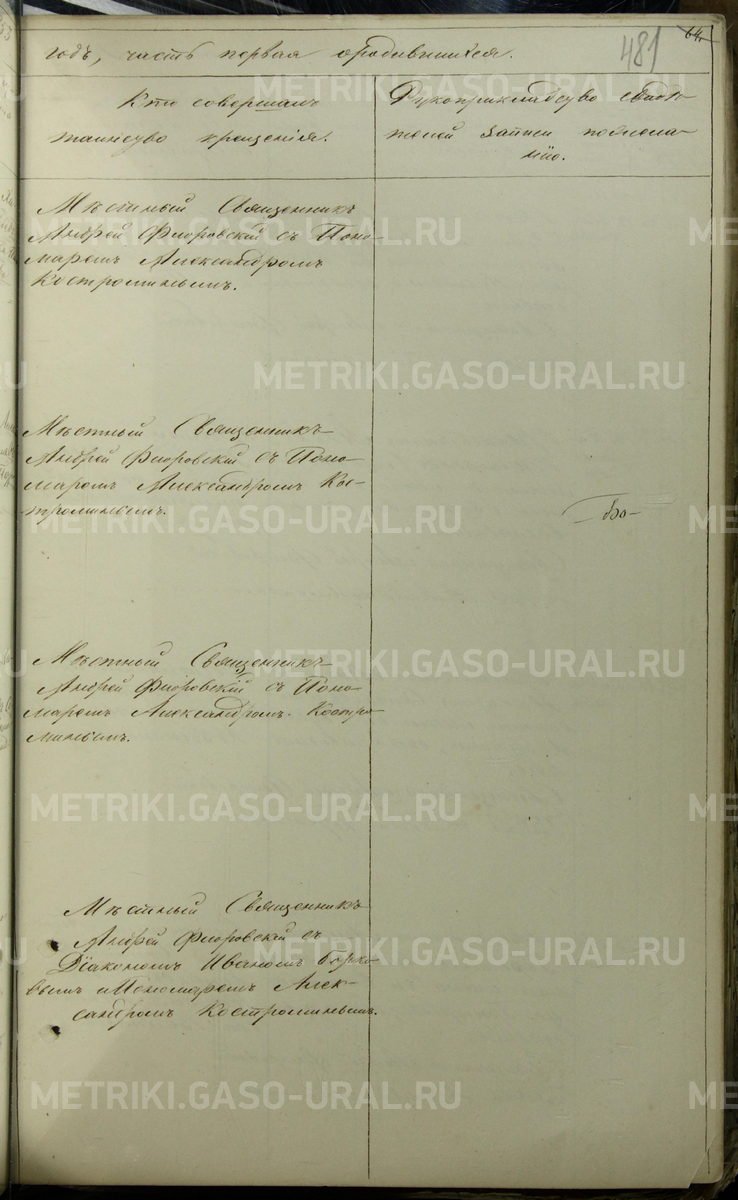 64.
481
годъ, часть первая о родившихся.
Кто совершалъ
таинство крещенія.
Рукоприкладство свидѣ-
телей записи по желанію.
Мѣстный Священникъ
Андрей Флоровскій съ Поно-
маремъ Александромъ
Костроминымъ.
Мѣстный Священникъ
Андрей Флоровскій съ Поно-
маремъ Александромъ Кос-
троминымъ.
Мѣстный Священникъ
Андрей Флоровскій съ Поно-
маремъ Александромъ Костро-
минымъ.
Мѣстный Священникъ
Андрей Флоровскій съ
Діакономъ Иваномъ
и Пономаремъ Алек-
сандромъ Костроминымъ.
METRIKI.GASO-URAL.RU